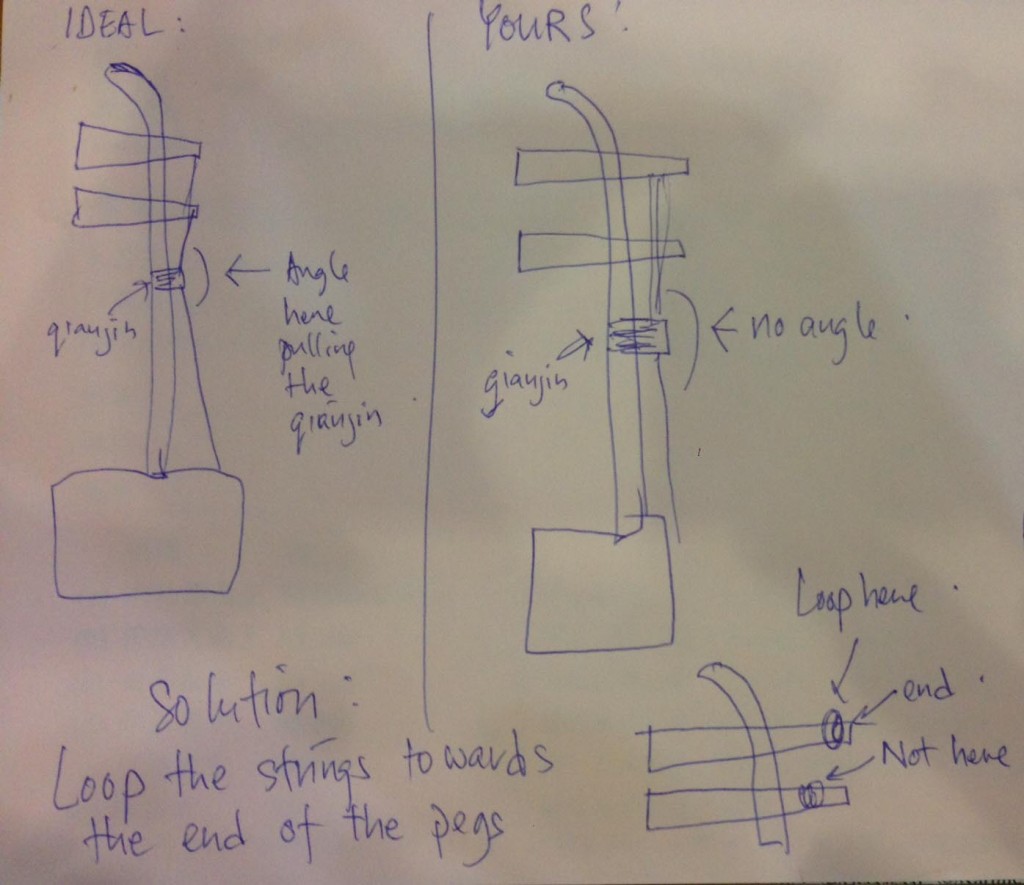 IDEAL:
YOURS:
qianjin
← Angle
here
pulling
the
qianjin
qianjin
← no angle
Solution:
Loop the strings towards
the end of the pegs
Loop here
end
Not here